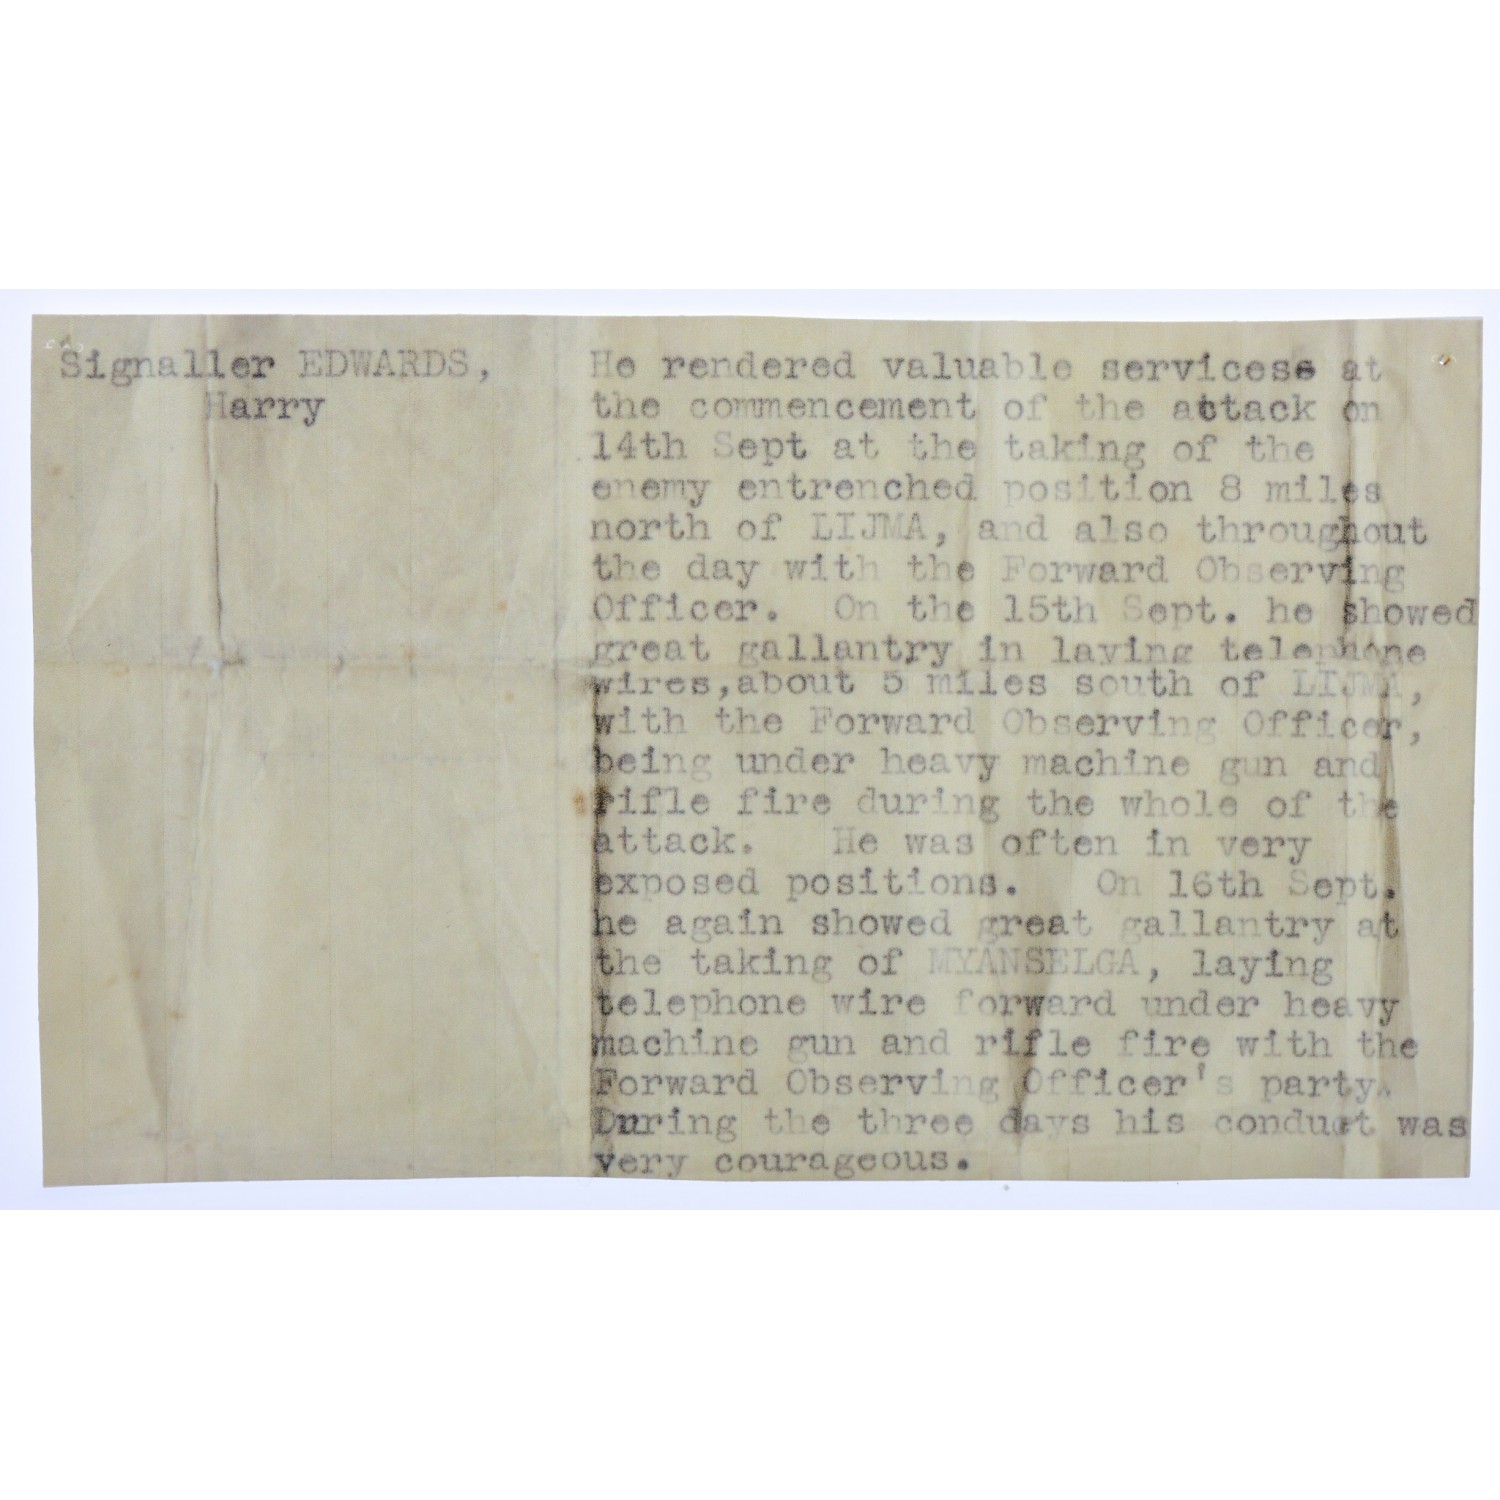 Signaller EDWARDS,
Harry
He rendered valuable services at
the commencement of the attack on
14th Sept at the taking of the
enemy entrenched position 8 miles
north of LIJMA, and also throughout
the day with the Forward Observing
Officer. On the 15th Sept. he showed
great gallantry in laying telephone
wires,about 5 miles south of LIJMA,
with the Forward Observing Officer,
being under heavy machine gun and
rifle fire during the whole of the
attack. He was often in very
exposed positions. On 16th Sept.
he again showed great gallantry at
the taking of MYANSELGA, laying
telephone wire forward under heavy
machine gun and rifle fire with the
Forward Observing Officer's party.
During the three days his conduct was
very courageous.